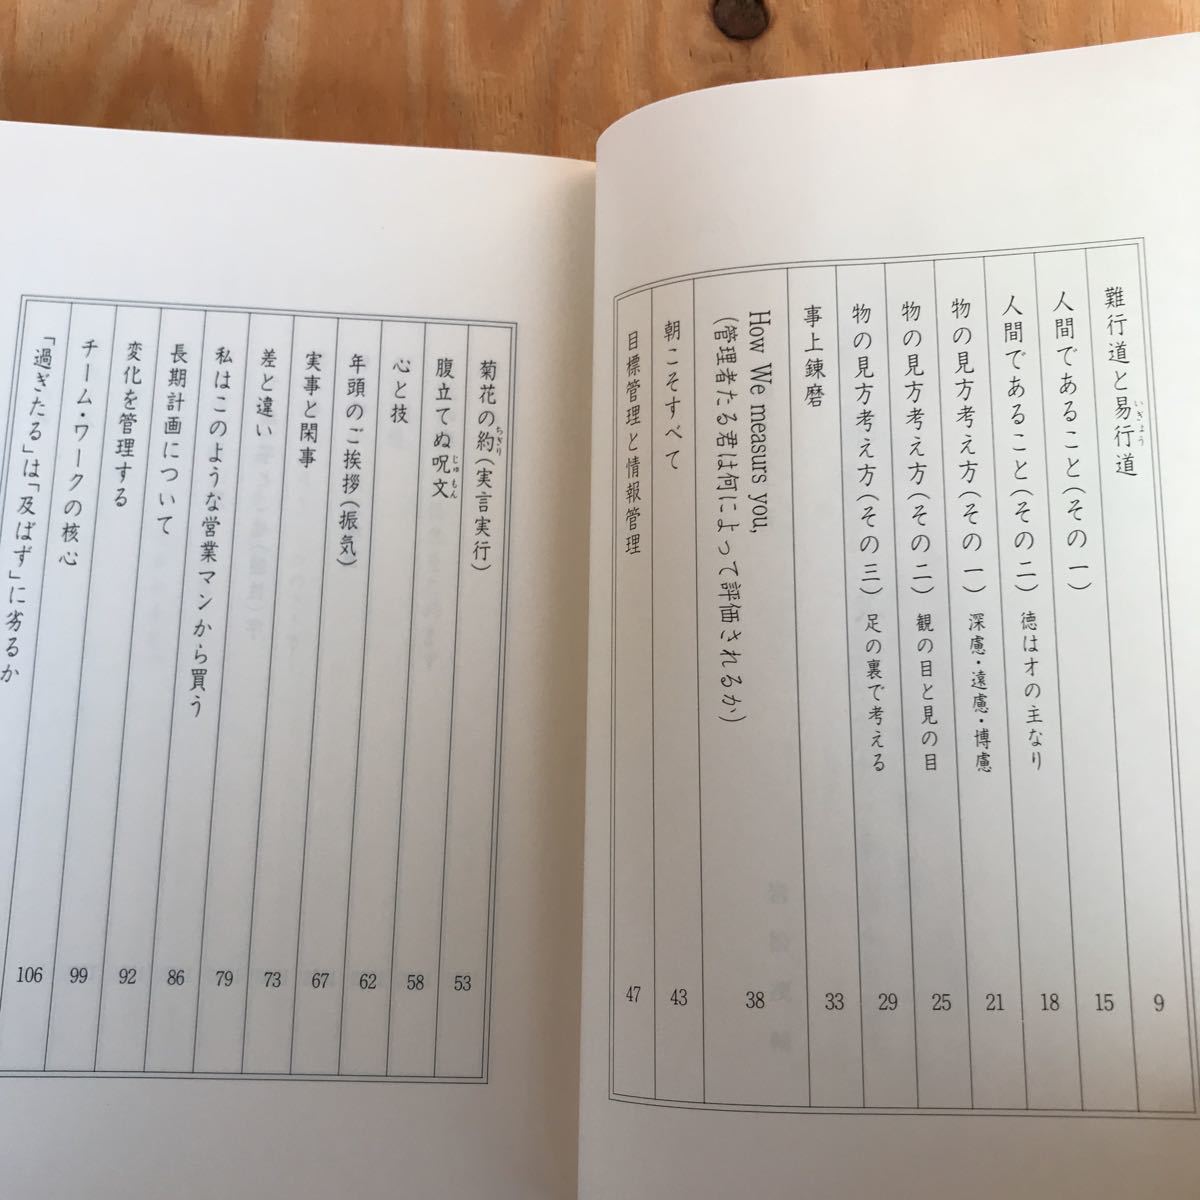 難行道と易行道 9
いぎょう
人間であること(その一) 15
人間であること(その二) 徳は才の主なり 18
物の見方考え方(その一) 深慮・遠慮・博慮 21
物の見方考え方(その二) 観の目と見の目 25
物の見方考え方(その三) 足の裏で考える 29
事上錬磨 33
How We measurs you,
(管理者たる君は何によって評価されるか) 38
朝こそすべて 43
目標管理と情報管理 47
菊花の約(実言実行) 53
ちぎり
腹立てぬ呪文 58
じゅもん
心と技 62
年頭のご挨拶(振気) 67
実事と閑事 73
差と違い 79
私はこのような営業マンから買う 86
長期計画について 92
変化を管理する 99
チーム・ワークの核心 106
「過ぎたる」は「及ばず」に劣るか